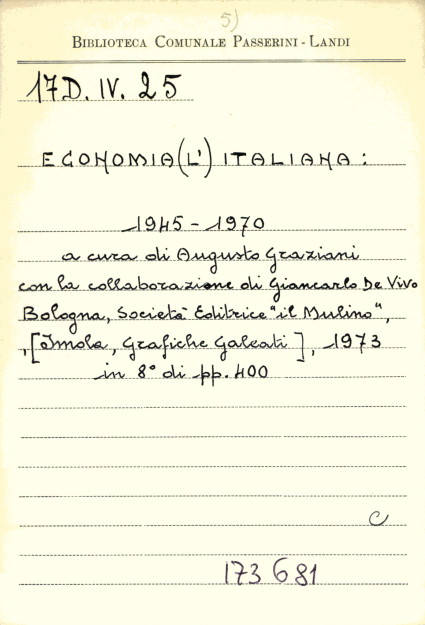 5)
BIBLIOTECA COMUNALE PASSERINI - LANDI
17D. IV. 25
ECONOMIA (L') ITALIANA :
1945 - 1970
a cura di Augusto Graziani
con la collaborazione di Giancarlo De Vivo
Bologna, Società Editrice "il Mulino",
, [Imola, Grafiche Galeati], 1973
in 8° di pp. 400
C
173681